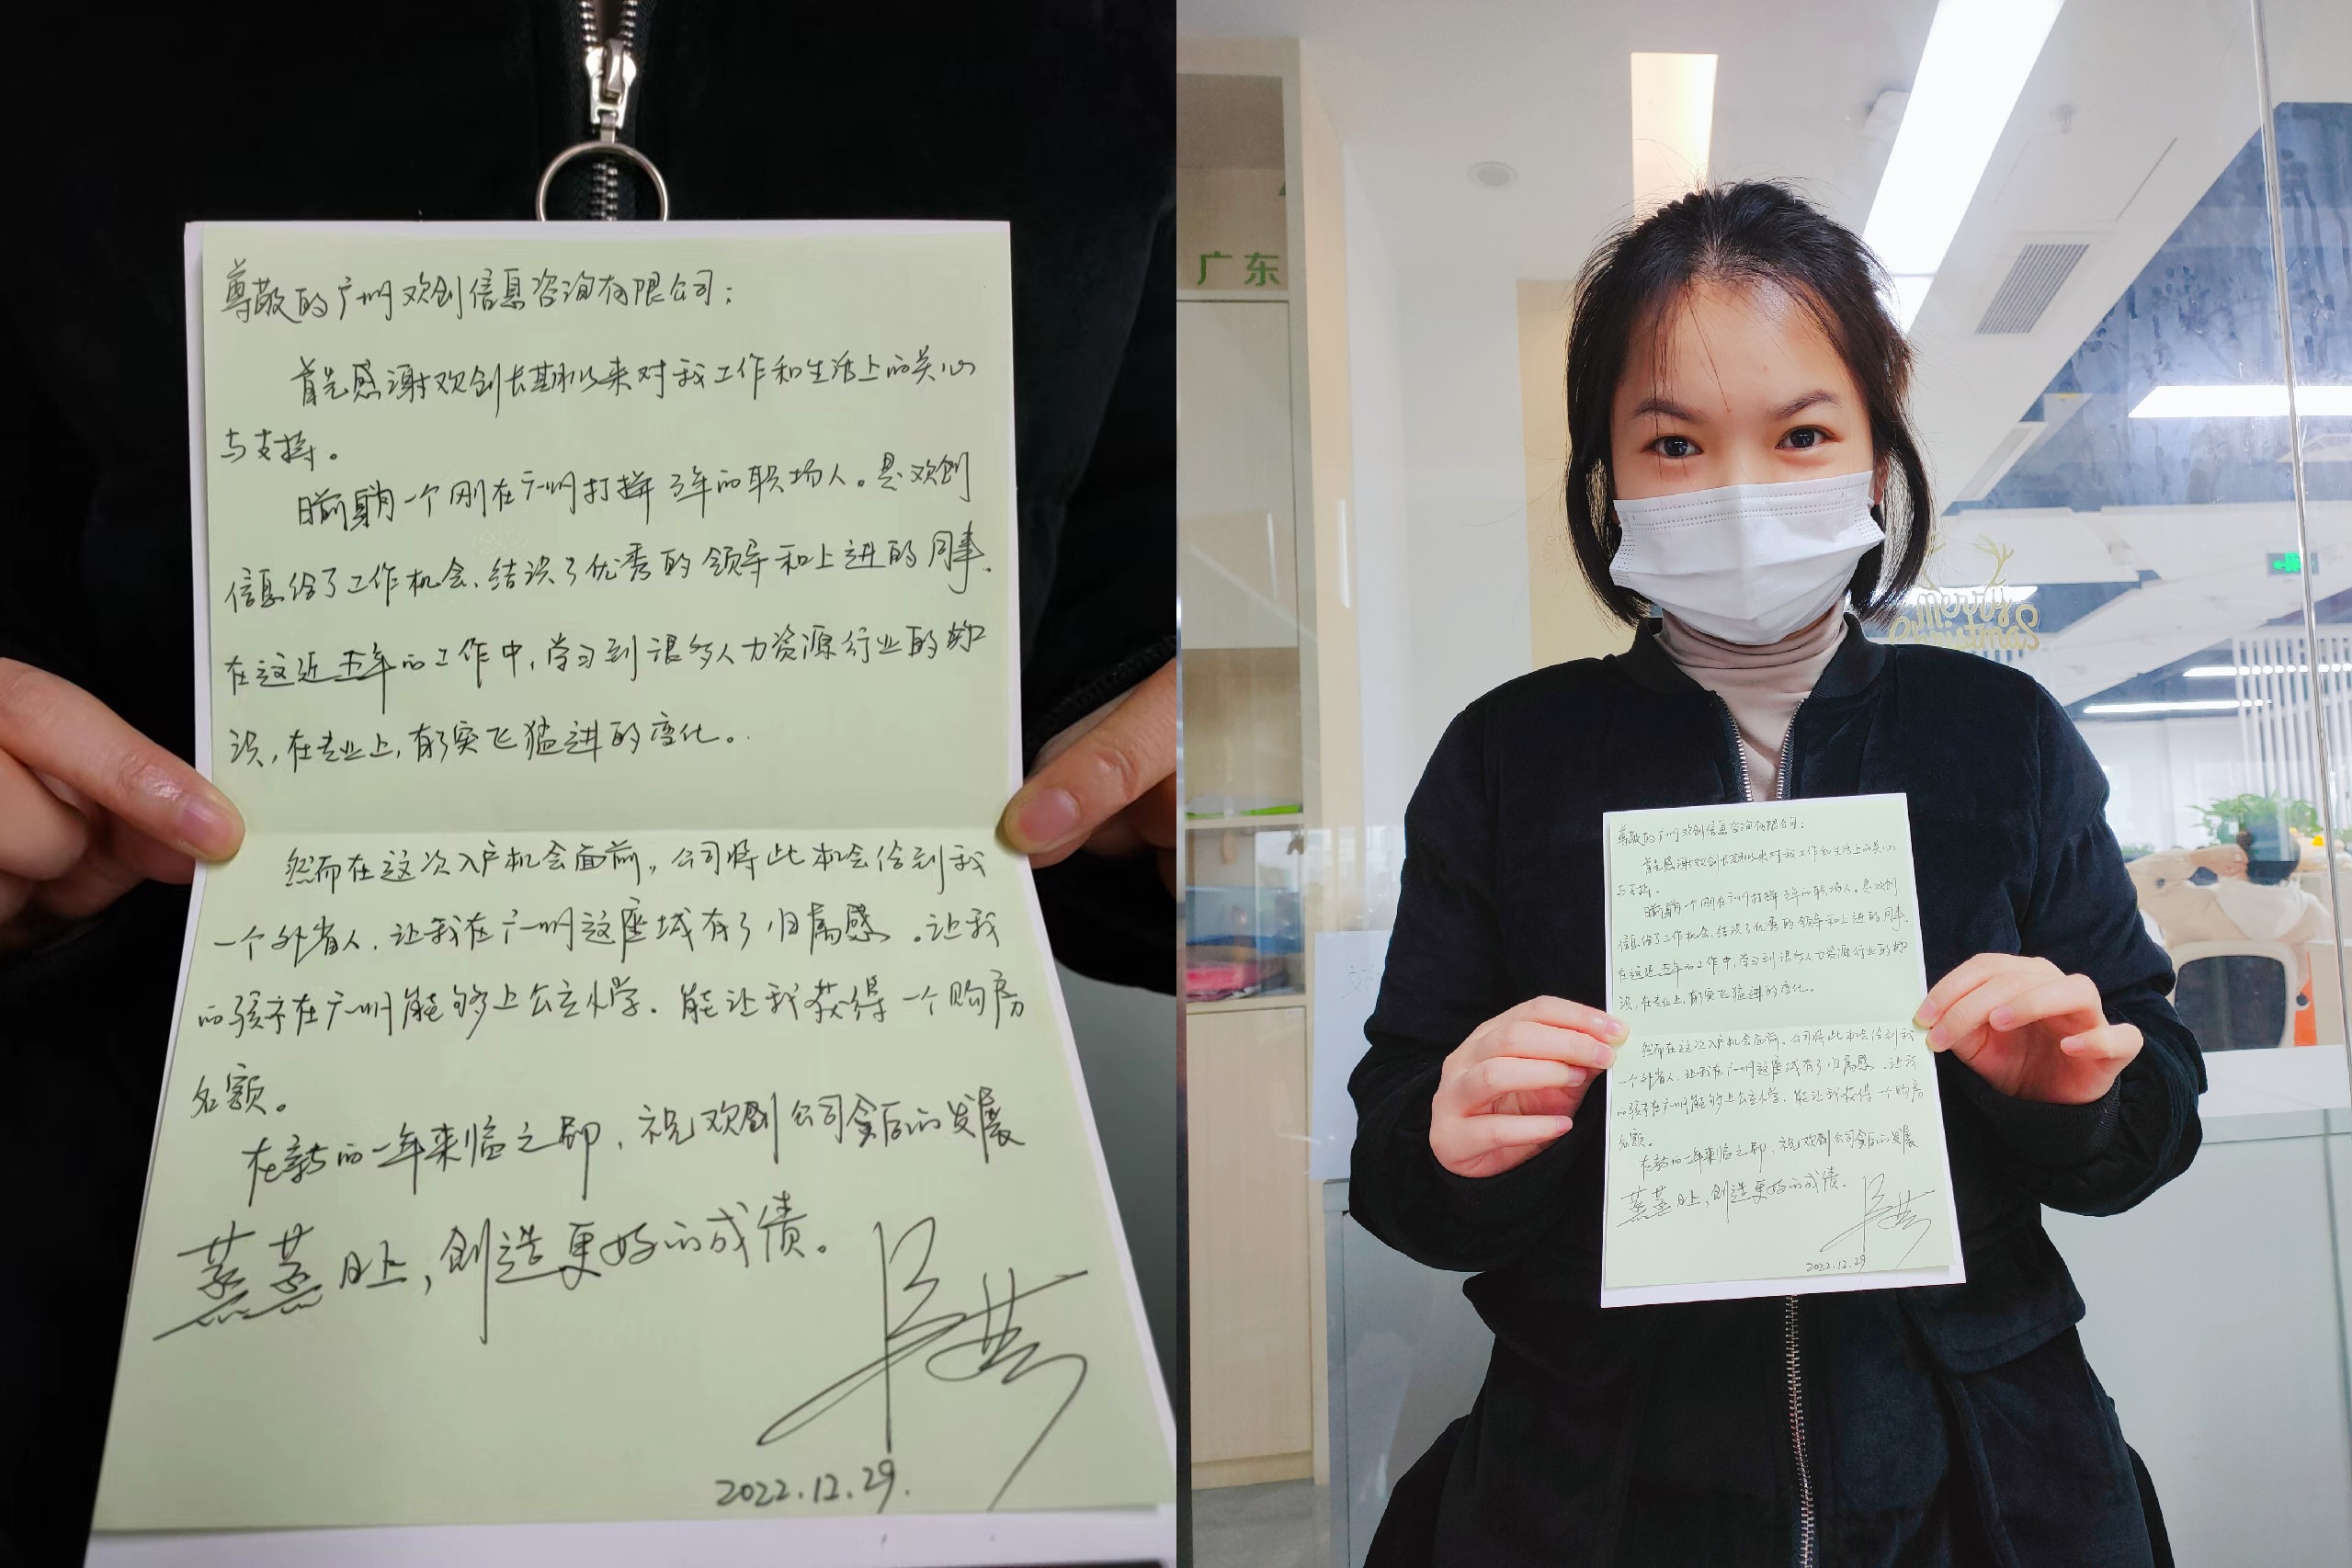 尊敬的广州欢创信息咨询有限公司：
首先感谢欢创长期以来对我工作和生活上的关心
与支持。
目前身为一个刚在广州打拼5年的职场人。是欢创
信息给了工作机会、结识了优秀的领导和上进的同事、
在这近五年的工作中，学习到很多人力资源行业的知
识，在专业上，有了突飞猛进的变化。
然而在这次入户机会面前，公司将此机会给到我
一个外省人，让我在广州这座城有了归属感。让我
的孩子在广州能够上公立小学。能让我获得一个购房
名额。
在新的一年来临之即，祝欢创公司今后的发展
蒸蒸日上，创造更好的成绩。
2022.12.29.
广东
Merry
Christmas
尊敬的广州欢创信息咨询有限公司：
首先感谢欢创长期以来对我工作和生活上的关心
与支持。
目前身为一个刚在广州打拼5年的职场人。是欢创
信息给了工作机会、结识了优秀的领导和上进的同事、
在这近五年的工作中，学习到很多人力资源行业的知
识，在专业上，有了突飞猛进的变化。
然而在这次入户机会面前，公司将此机会给到我
一个外省人，让我在广州这座城有了归属感。让我
的孩子在广州能够上公立小学。能让我获得一个购房
名额。
在新的一年来临之即，祝欢创公司今后的发展
蒸蒸日上，创造更好的成绩。
2022.12.29.